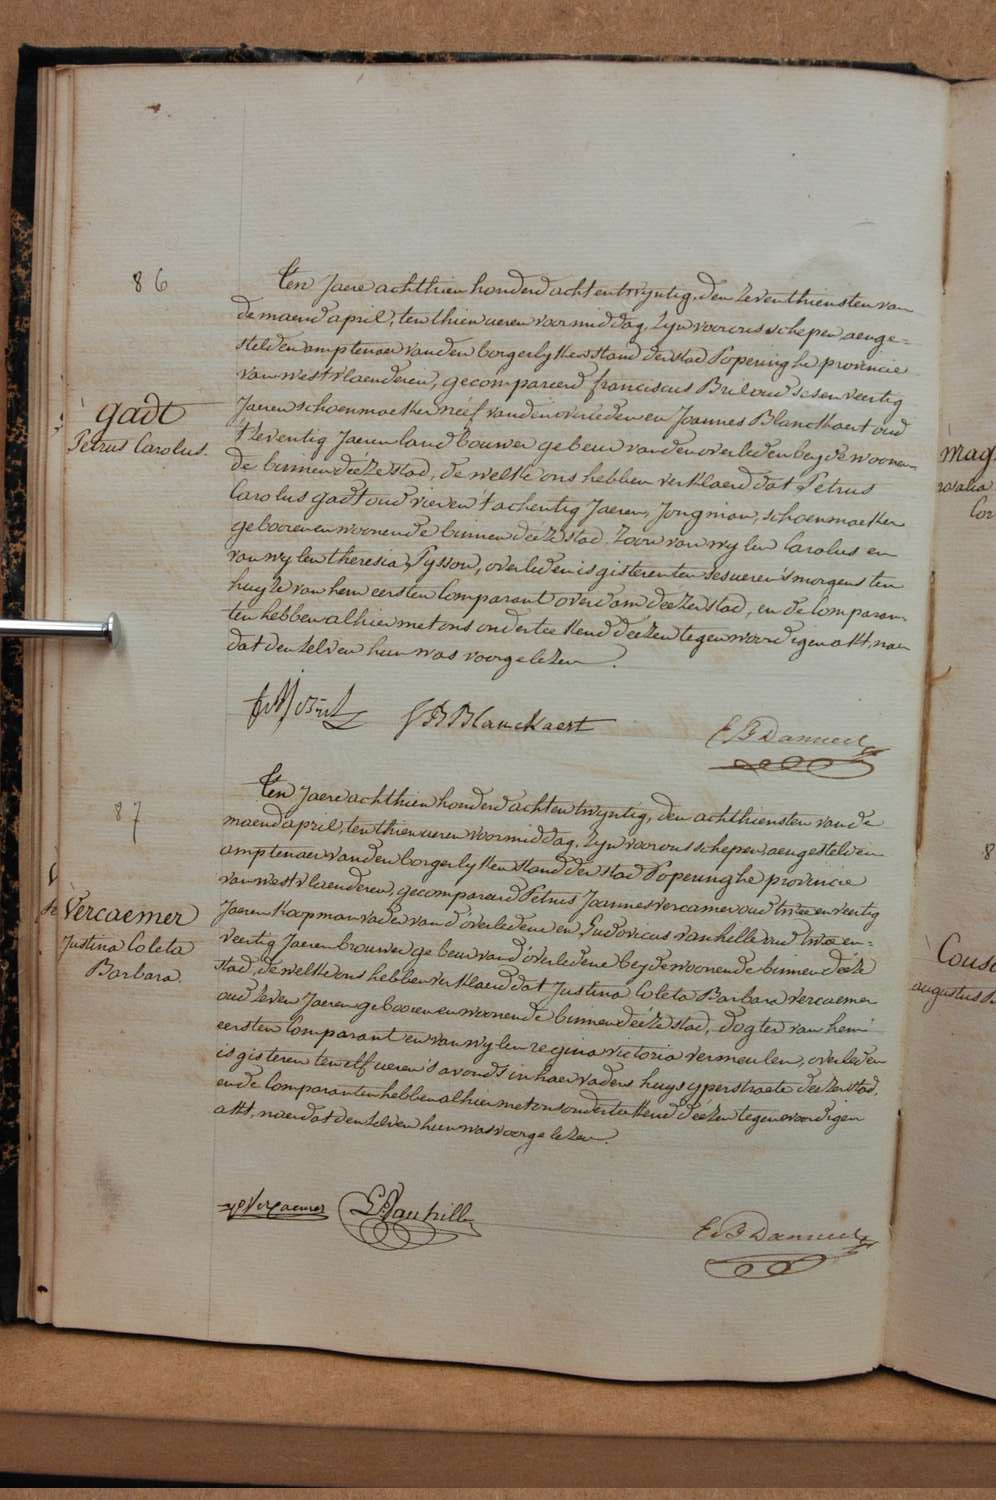 86
gadt
Petrus Carolus.
Ten Jaere achthien honderd acht en twyntig, den zeventhiensten van
de maend april, ten thien ueren voormiddag, Zyn voor ons schepen, aenge=
stelden amptenaer van den borgerlyken stand der stad Poperinghe provincie
van westvlaenderen, gecompareerd franciscus Bril oud sesen veertig
Jaeren schoenmaeker néef van den overleden en Joannes Blanckaert oud
t'zeventig Jaeren landbouwer gebeur van den overleden beyde woonen-
de binnen déeze stad, de welke ons hebben verklaerd dat Petrus
Carolus gadt oud vier en t'achentig Jaeren, Jongman, schoenmaeker
gebooren en woonende binnen déeze stad. Zoon van wylen Carolus en
van wylen theresia Tysson, overleden is gisteren ten ses ueren 's morgens ten
huyze van hem eersten Comparant overdam deezer stad, en de Comparan-
ten hebben alhier met ons onderteekend déezen tegenwoordigen akt, naer
dat den zelven hun was voorgelezen.
J B Blanckaert
87
Vercaemer
Justina Coleta
Barbara.
Ten Jaere achthien honderd acht en twyntig, den achthiensten van de
maend april, ten thien ueren voormiddag, Zyn voor ons schepen, aengestelden
amptenaer van den borgerlyken stand der stad Poperinghe provincie
van westvlaenderen, gecompareerd Petrus Joannes vercamer oud twee en veertig
Jaeren koopman vader van d'overledene en Ludovicus vanhille oud twee en=
veertig Jaeren brouwer gebeur van d'overledene beyde woonende binnen déeze
stad, de welke ons hebben verklaerd dat Justina Coleta Barbara vercaemer
oud zeven Jaeren gebooren en woonende binnen déeze stad, dogter van hem
eersten Comparant en van wylen regina victoria vermeulen, overleden
is gisteren ten elf ueren 's avonds in haer vaders huys yperstraete deezer stad,
en de Comparanten hebben alhier met ons onderteekend déezen tegenwoordigen
akt, naer dat den zelven hun was voorgelezen.
Vercaemer
Vanhille